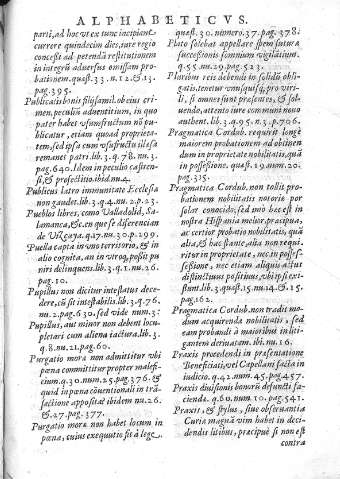 ALPHABETICVS.
parti, ad hoc vt ex tunc incipiant
currere quindecim dies, iure regio
concessi ad petendã restitutionem
in integrũ aduersus omissam pro-
bationem. quæst. 33. n. 12. & 13.
pag. 395.
Publicatis bonis filijsfami. ob eius cri-
men, peculiũ aduentitium, in quo
pater habet vsumfructum nõ pu-
blicatur, etiam quoad proprieta-
tem, sed ipsa cum vsufructu illæsa
remanet patri. lib. 3. q. 78. nu. 3.
pag. 640. Idem in peculio castren-
si, & profectitio. ibid. nu. 4.
Publicus latro immunitate Ecclesiæ
non gaudet. lib. 3. q. 4. nu. 2. p. 23.
Pueblos libres, como Valladolid, Sa-
lamanca, &c. en que se diferencian
de Vizcaya. q. 17. nu. 30. p. 299.
Puella capta in vno territorio, & in
alio cognita, an in vtroq; possit pu
niri delinquens. lib. 3. q. 1. nu. 26.
pag. 10.
Pupillus non dicitur intestatus dece-
dere, cũ sit intestabilis. lib. 3. q. 76.
nu. 2. pag. 630. sed vide num. 3:
Pupillus, aut minor non debent locu-
pletari cum aliena iactura. lib. 3.
q. 8. nu. 21. pag. 60.
Purgatio mora non admittitur vbi
pœna committitur propter malefi-
cium. q. 30. num. 25. pag. 376. &
quid in pœna cõuentionali in trã-
sactione apposita? ibidem nu. 26.
& 27. pag. 377.
Purgatio mora non habet locum in
pœna, cuius exequutio fit à lege,
quæst. 30. numero. 37. pag. 378.
Plato solebat appellare spem futuræ
successionis somnium vigilantium.
q. 55. nu. 29. pag. 523.
Plurium reis debendi in solidũ obli-
gatis, tenetur vnusquisq; pro viri-
li, si omnes sunt præsentes, & sol-
uendo, attento iure communi noua
authent. lib. 3. q. 95. n. 3. p. 706.
Pragmatica Cordub. requirit longè
maiorem probationem ad obtinen
dum in proprietate nobilitatis, quã
in possessione. quæst. 19. num. 20.
pag. 315.
Pragmatica Cordub. non tollit pro-
bationem nobilitatis notorij por
solar conocido, sed imò hæc est in
nostra Hispania melior, præcipua,
ac certior probatio nobilitatis, quã
alia, & hæc stante, alia non requi-
ritur in proprietate, nec in posses-
sessione, nec etiam aliquis actus
distinctiuus positiuus, vel exemp-
tiuus. lib. 3. quæst. 15. nu. 14. & 15.
pag. 162.
Pragmatica Cordub. non tradit mo-
dum acquirenda nobilitatis, sed
eam probandi à maioribus in liti-
gantem deriuatam. ibi. nu. 16.
Praxis procedendi in præsentatione
Beneficiati, vel Capellani facta in
iudicio. q. 42. num. 45. pag. 457.
Praxis diuisionis bonorũ defuncti fa-
cienda. q. 60. num. 10. pag. 541.
Praxis, & stylus, siue obseruantia
Curiæ magnã vim habet in deci-
dendis litibus, præcipuè si non est
contra